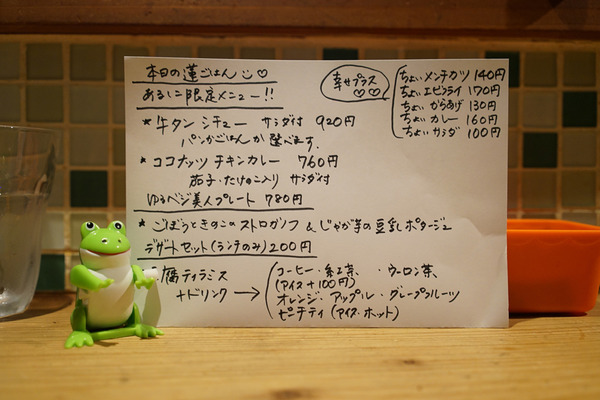 本日の蓮ごはん
あるじこ限定メニュー!!
* 牛タンシチュー サラダ付 920円
パンかごはんか選べます。
* ココナッツチキンカレー 760円
茄子・たけのこ入り サラダ付
ゆるベジ美人プレート 780円
* ごぼうときのこのストロガノフ & じゃが芋の豆乳ポタージュ
デザートセット(ランチのみ)200円
腐ティラミス
+ドリンク →
コーヒー・紅茶・ウーロン茶
(アイス+100円)
オレンジ・アップル・グレープフルーツ
ピーチティ(アイス・ホット)
幸せプラス
ちょい メンチカツ 140円
ちょい エビフライ 170円
ちょい からあげ 130円
ちょい カレー 160円
ちょい サラダ 100円